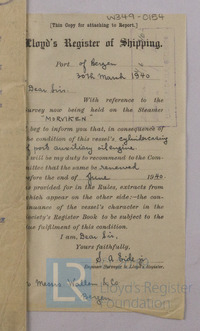 W349-0154
[This Copy for attaching to Report.]
Lloyd's Register of Shipping.
Port of Bergen
30th March 1940
Dear Sirs,
With reference to the
survey now being held on the Steamer
"MORVIKEN"
beg to inform you that, in consequence of
the condition of this vessel's cylinder casing
of port auxiliary oil engine.
I will be my duty to recommend to the Com-
mittee that the same be renewed
before the end of June 1940.
provided for in the Rules, extracts from
which appear on the other side:—the con-
tinuance of the vessel's character in the
Society's Register Book to be subject to the
due fulfilment of this condition.
I am, Dear Sir,
Yours faithfully,
Surveyor to Lloyd's Register.
Messrs Wallem & Co
Bergen
LR
Lloyd's Register
Foundation